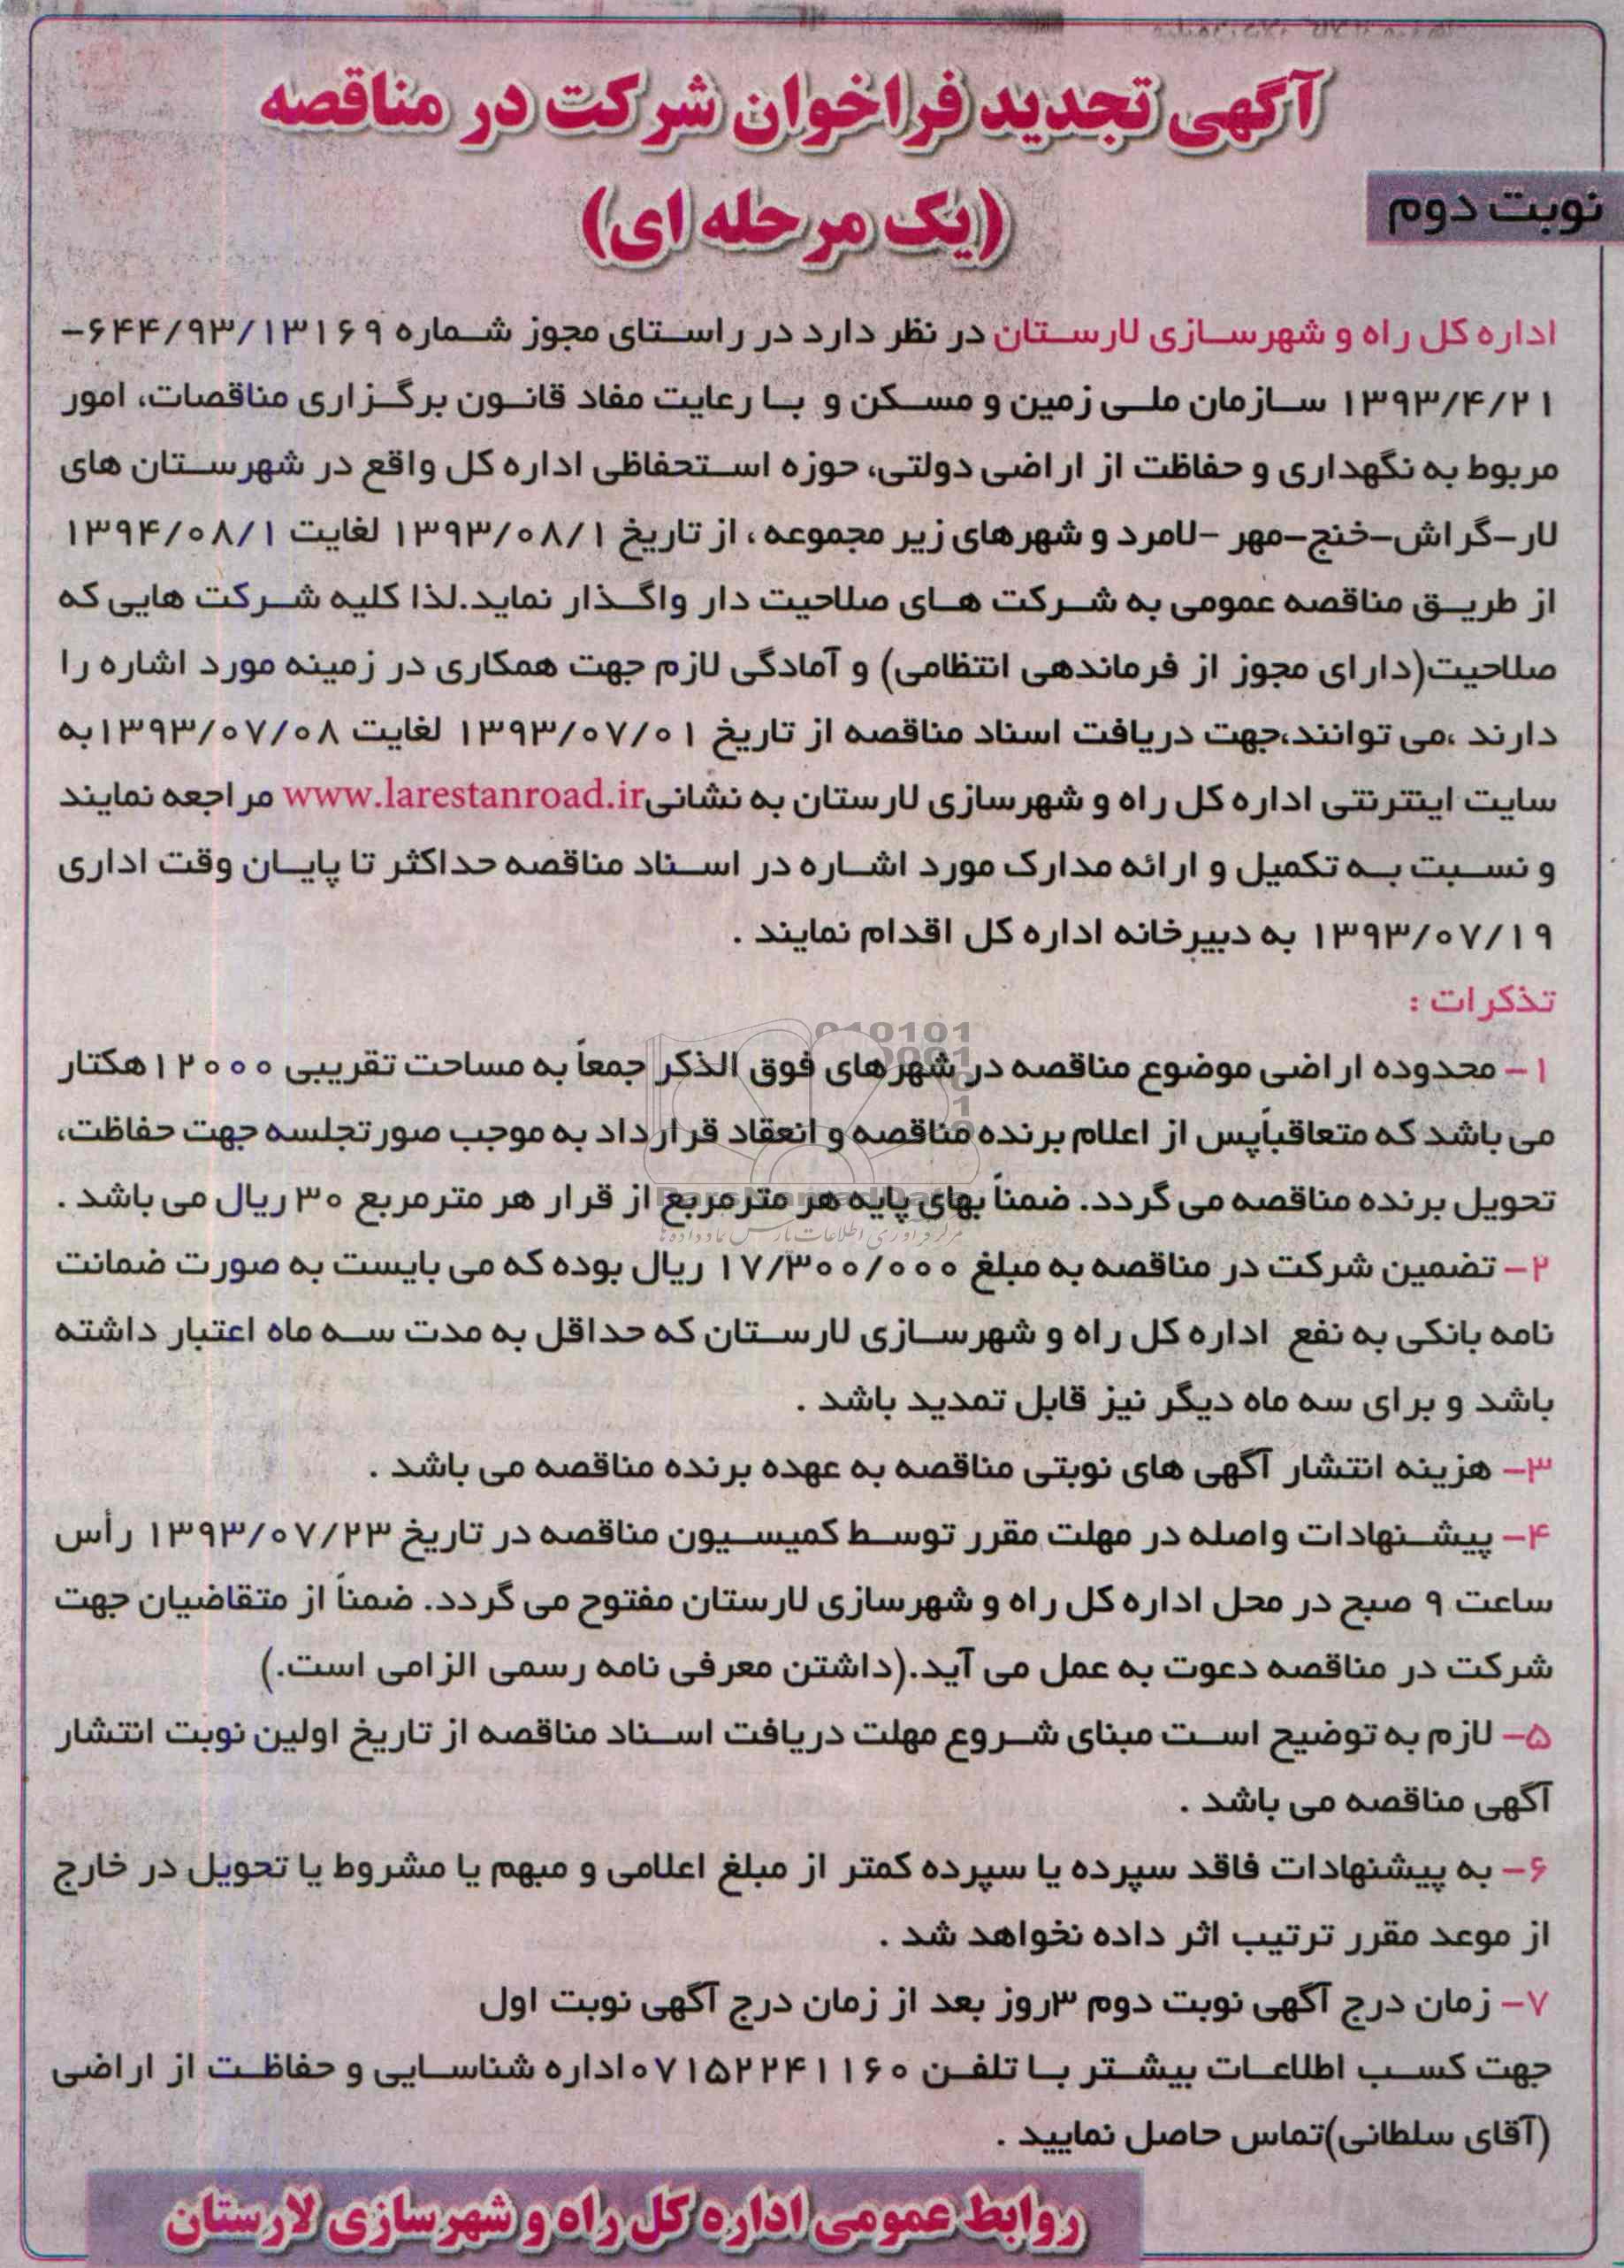 آگهی تجدید فراخوان شرکت در مناقصه
(یک مرحله ای)
نوبت دوم
اداره کل راه و شهرسازی لارستان در نظر دارد در راستای مجوز شماره ۶۴۴/۹۳/۱۳۱۶۹-
۱۳۹۳/۴/۲۱ سازمان ملی زمین و مسکن و با رعایت مفاد قانون برگزاری مناقصات، امور
مربوط به نگهداری و حفاظت از اراضی دولتی، حوزه استحفاظی اداره کل واقع در شهرستان های
لار-گراش-خنج-مهر -لامرد و شهرهای زیر مجموعه ، از تاریخ ۱۳۹۳/۰۸/۱ لغایت ۱۳۹۴/۰۸/۱
از طریق مناقصه عمومی به شرکت های صلاحیت دار واگذار نماید.لذا کلیه شرکت هایی که
صلاحیت(دارای مجوز از فرماندهی انتظامی) و آمادگی لازم جهت همکاری در زمینه مورد اشاره را
دارند ،می توانند،جهت دریافت اسناد مناقصه از تاریخ ۱۳۹۳/۰۷/۰۱ لغایت ۱۳۹۳/۰۷/۰۸به
سایت اینترنتی اداره کل راه و شهرسازی لارستان به نشانیwww.larestanroad.ir مراجعه نمایند
و نسبت به تکمیل و ارائه مدارک مورد اشاره در اسناد مناقصه حداکثر تا پایان وقت اداری
۱۳۹۳/۰۷/۱۹ به دبیرخانه اداره کل اقدام نمایند .
تذکرات :
۱- محدوده اراضی موضوع مناقصه در شهرهای فوق الذکر جمعاً به مساحت تقریبی ۱۲۰۰۰هکتار
می باشد که متعاقباًپس از اعلام برنده مناقصه و انعقاد قرارداد به موجب صورتجلسه جهت حفاظت،
تحویل برنده مناقصه می گردد. ضمناً بهای پایه هر مترمربع از قرار هر مترمربع ۳۰ریال می باشد .
۲- تضمین شرکت در مناقصه به مبلغ ۱۷/۳۰۰/۰۰۰ ریال بوده که می بایست به صورت ضمانت
نامه بانکی به نفع اداره کل راه و شهرسازی لارستان که حداقل به مدت سه ماه اعتبار داشته
باشد و برای سه ماه دیگر نیز قابل تمدید باشد .
۳- هزینه انتشار آگهی های نوبتی مناقصه به عهده برنده مناقصه می باشد .
۴- پیشنهادات واصله در مهلت مقرر توسط کمیسیون مناقصه در تاریخ ۱۳۹۳/۰۷/۲۳ رأس
ساعت ۹ صبح در محل اداره کل راه و شهرسازی لارستان مفتوح می گردد. ضمناً از متقاضیان جهت
شرکت در مناقصه دعوت به عمل می آید.(داشتن معرفی نامه رسمی الزامی است.)
۵- لازم به توضیح است مبنای شروع مهلت دریافت اسناد مناقصه از تاریخ اولین نوبت انتشار
آگهی مناقصه می باشد .
۶- به پیشنهادات فاقد سپرده یا سپرده کمتر از مبلغ اعلامی و مبهم یا مشروط یا تحویل در خارج
از موعد مقرر ترتیب اثر داده نخواهد شد .
۷- زمان درج آگهی نوبت دوم ۳روز بعد از زمان درج آگهی نوبت اول
جهت کسب اطلاعات بیشتر با تلفن ۰۷۱۵۲۲۴۱۱۶۰اداره شناسایی و حفاظت از اراضی
(آقای سلطانی)تماس حاصل نمایید .
روابط عمومی اداره کل راه و شهرسازی لارستان